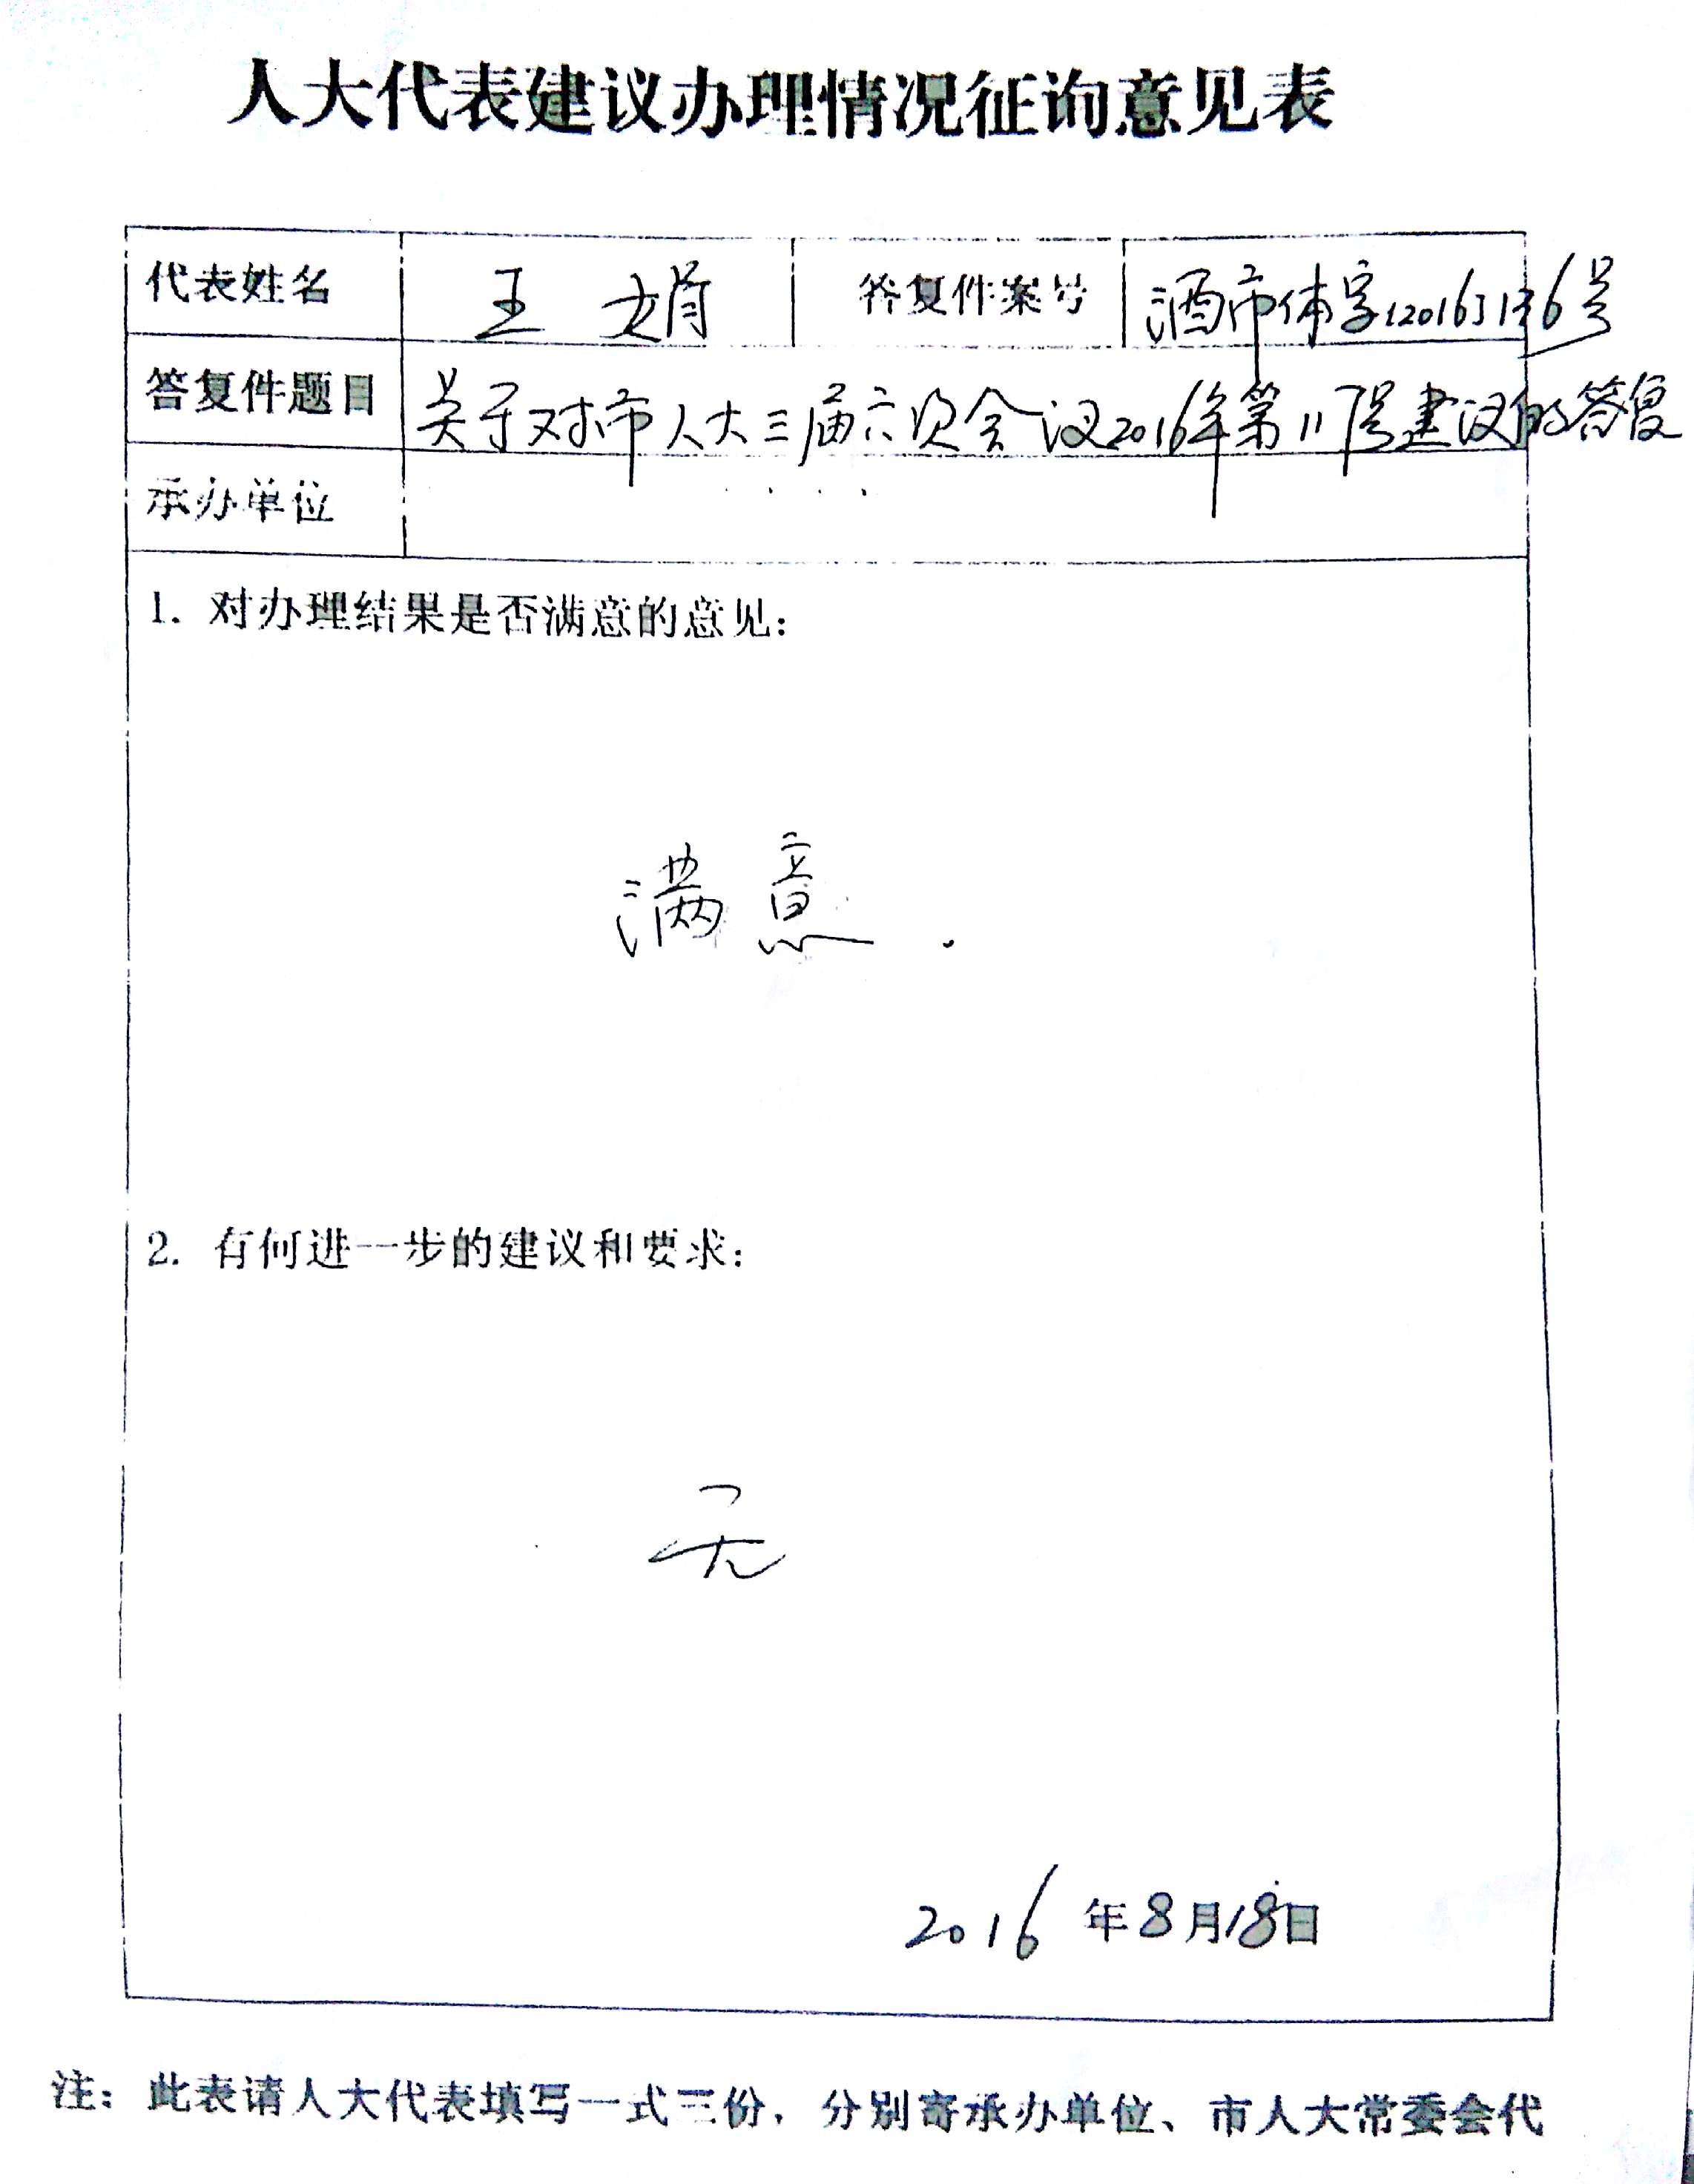 人大代表建议办理情况征询意见表
代表姓名 王 娟 答复件案号 酒市体字〔2016〕136号
答复件题目 关于对市人大三届六次会议2016年第117号建议的答复
承办单位
1. 对办理结果是否满意的意见：
满意.
2. 有何进一步的建议和要求：
无
2016年8月18日
注：此表请人大代表填写一式三份，分别寄承办单位、市人大常委会代